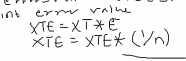 int error value
XTE = XT * E
XTE = XTE * (1/n)